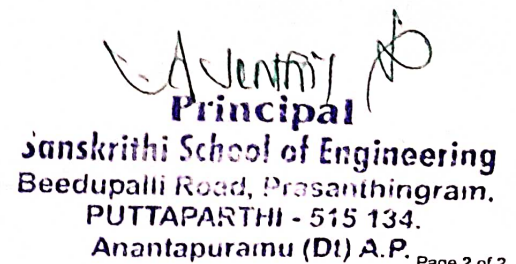 Principal
Sanskrithi School of Engineering
Beedupalli Road, Prasanthingram.
PUTTAPARTHI - 515 134.
Anantapuramu (Dt) A.P.
Page 2 of 2